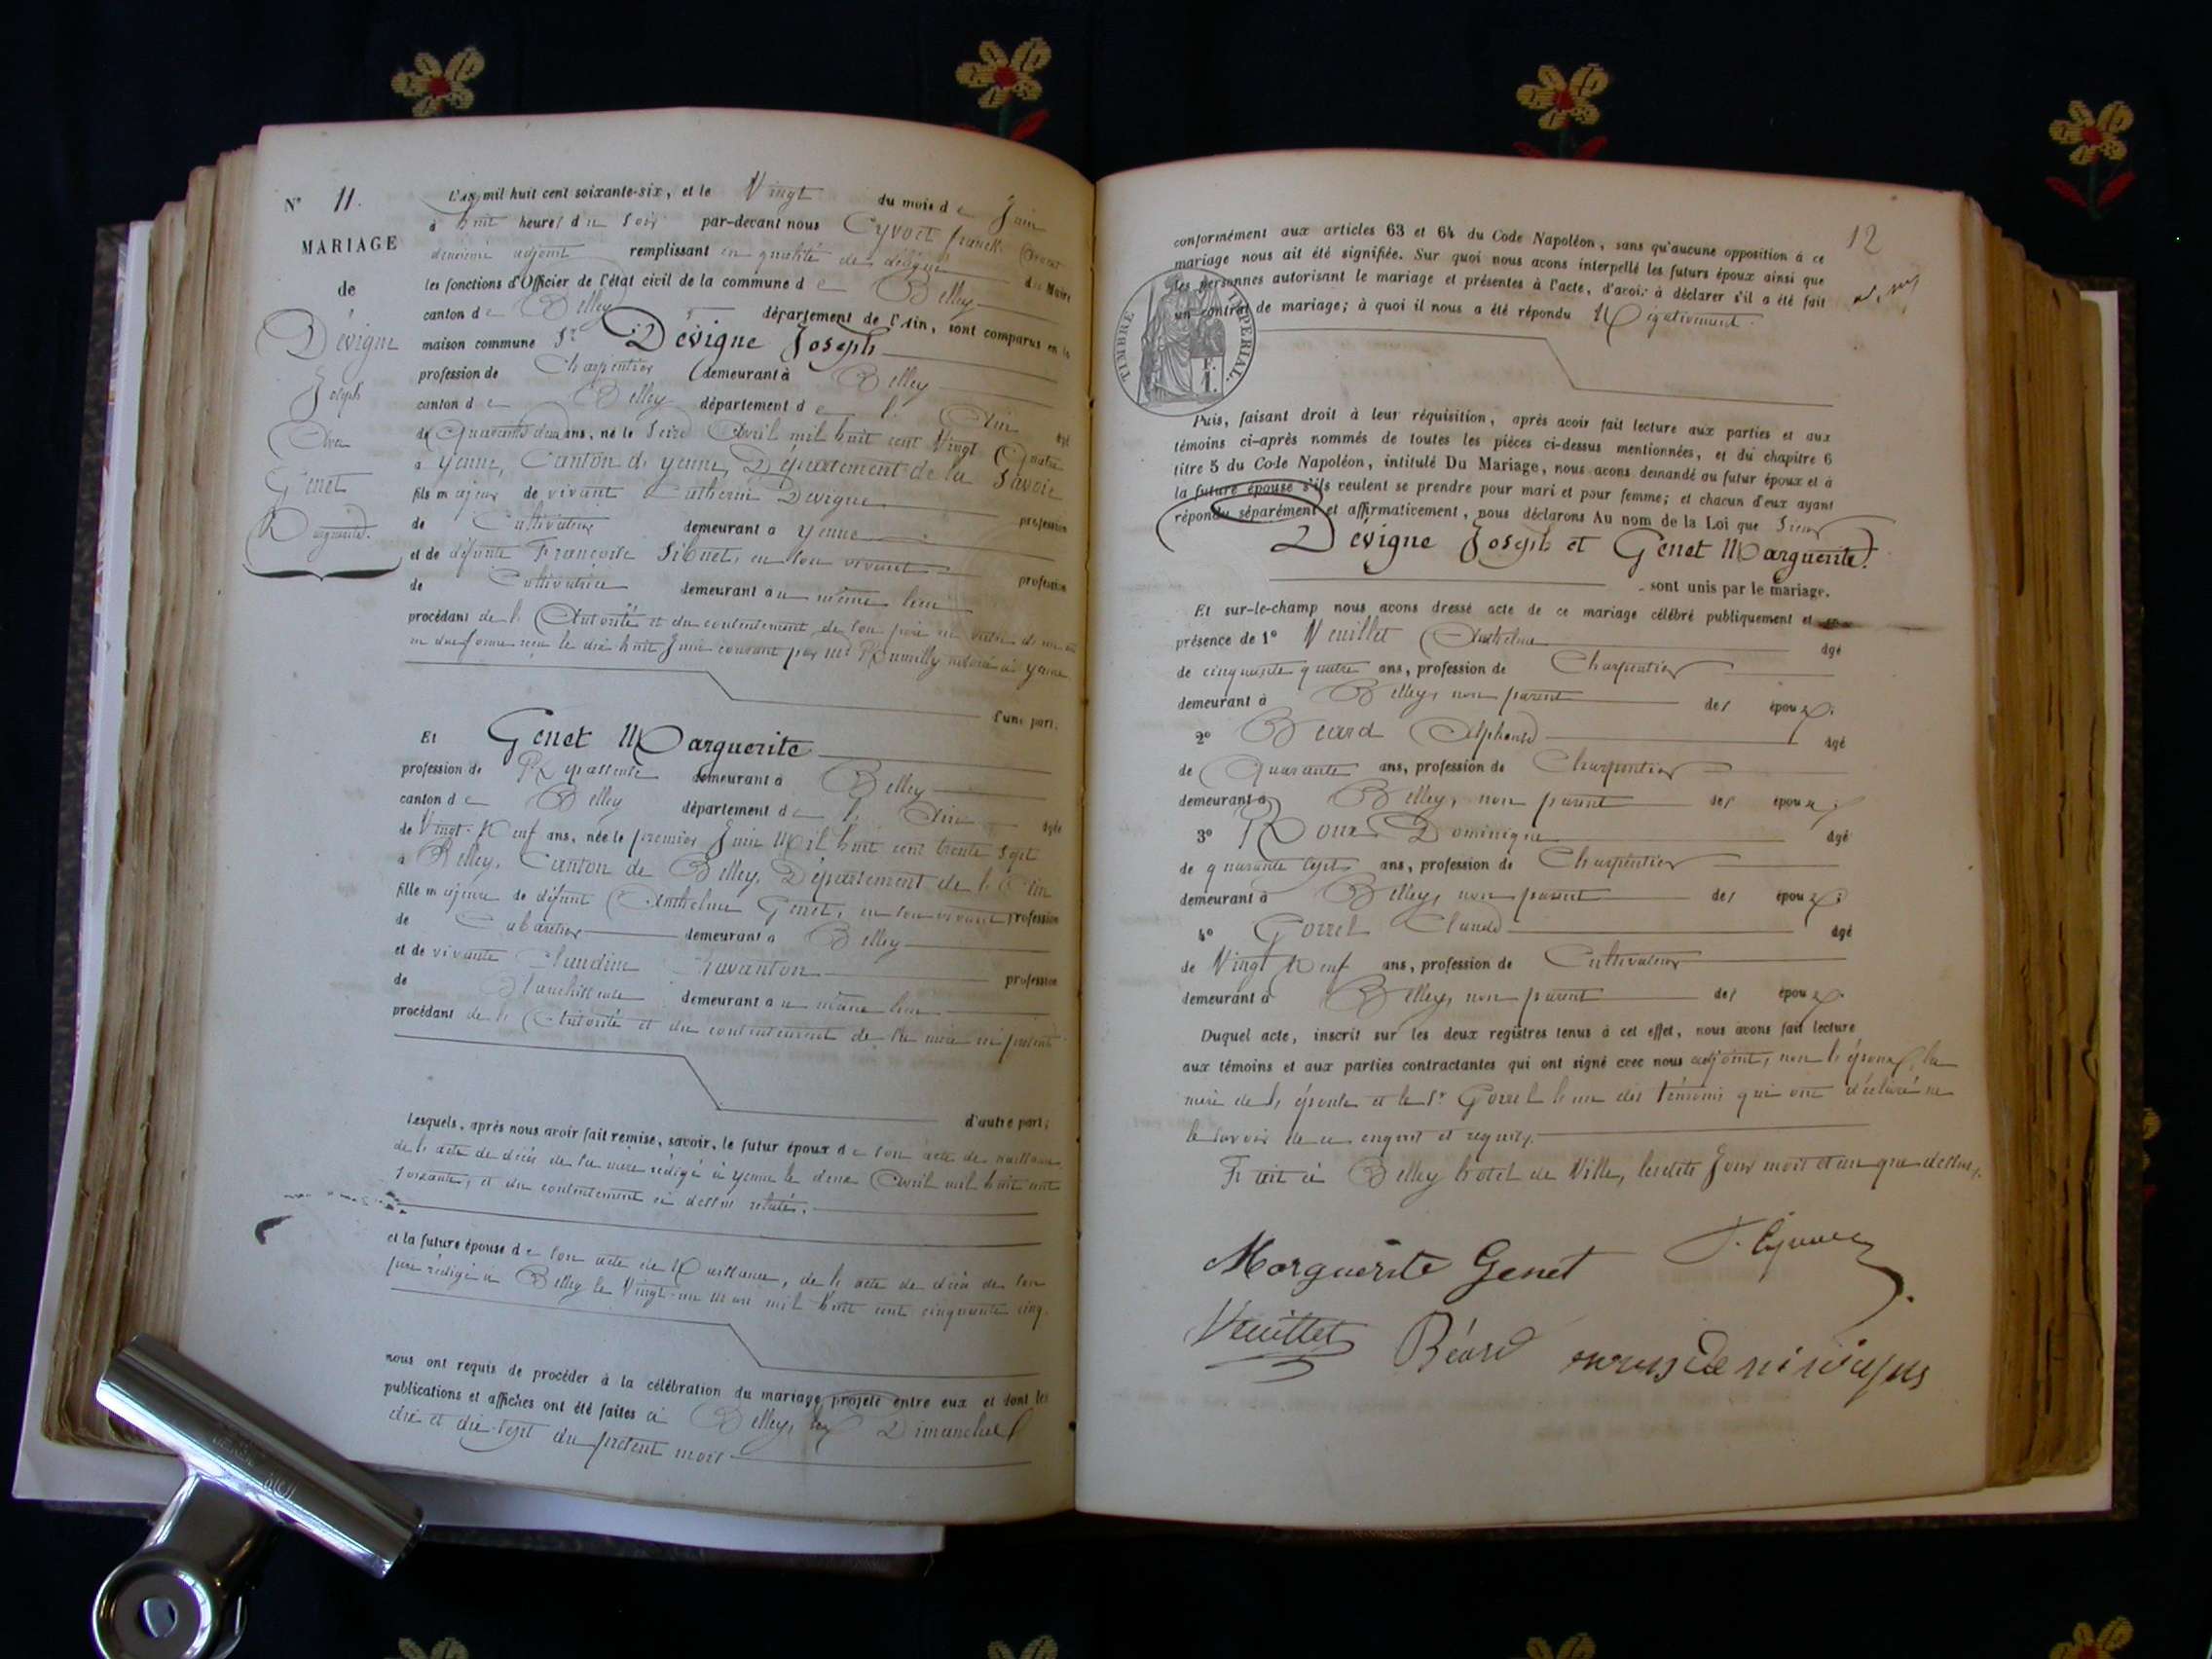 N° 11.
MARIAGE
de
Dévigne
Joseph
Avec
Genet
Marguerite.
L'an mil huit cent soixante-six, et le Vingt du mois de Juin
à huit heures du soir par-devant nous Cyvoct franck. Avocat
deuxième adjoint remplissant en qualité de délégué du Maire
les fonctions d'Officier de l'état civil de la commune de Belley
canton de Belley département de l'Ain, sont comparus en la
maison commune Sr Dévigne Joseph
profession de Charpentier demeurant à Belley
canton de Belley département de l'Ain âgé
de Quarante deux ans, né le seize Avril mil huit cent Vingt Quatre
à Yenne, Canton de Yenne, Département de la Savoie
fils majeur de vivant Catherin Devigne profession
de Cultivateur demeurant à Yenne
et de défunte Françoise Sibuet, en son vivant profession
de Cultivatrice demeurant au même lieu
procédant de l'Autorité et du consentement de son père en vertu de
en due forme reçu le dix huit Juin courant par Me notaire à Yenne
d'une part.
Et Genet Marguerite
profession de Repasseuse demeurant à Belley
canton de Belley département de l'Ain âgée
de Vingt-Neuf ans, née le premier Juin Mil huit cent trente sept
à Belley, Canton de Belley, Département de l'Ain
fille majeure de défunt Anthelme Genet, en son vivant profession
de Cabaretier demeurant à Belley
et de vivante Claudine Chavanton profession
de Blanchisseuse demeurant au même lieu
procédant de l'Autorité et du consentement de sa mère ici présente
d'autre part;
Lesquels, après nous avoir fait remise, savoir, le futur époux de son acte de naissance
de l'acte de décès de sa mère rédigé à Yenne le deux Avril mil huit cent
soixante, et du consentement ci dessus relaté.
et la future épouse de son acte de Naissance, de l'acte de décès de son
père rédigé à Belley le Vingt-un mars mil huit cent cinquante cinq.
nous ont requis de procéder à la célébration du mariage projeté entre eux et dont les
publications et affiches ont été faites à Belley, les Dimanches
dix et dix-sept du présent mois
12
conformément aux articles 63 et 64 du Code Napoléon, sans qu'aucune opposition à ce
mariage nous ait été signifiée. Sur quoi nous avons interpellé les futurs époux ainsi que
les personnes autorisant le mariage et présentes à l'acte, d'avoir à déclarer s'il a été fait
un contrat de mariage; à quoi il nous a été répondu Négativement.
TIMBRE IMPERIAL.
F.
1.
Puis, faisant droit à leur réquisition, après avoir fait lecture aux parties et aux
témoins ci-après nommés de toutes les pièces ci-dessus mentionnées, et du chapitre 6
titre 5 du Code Napoléon, intitulé Du Mariage, nous avons demandé au futur époux et à
la future épouse s'ils veulent se prendre pour mari et pour femme; et chacun d'eux ayant
répondu séparément et affirmativement, nous déclarons Au nom de la Loi que Sieur
Dévigne Joseph et Genet Marguerite.
sont unis par le mariage.
Et sur-le-champ nous avons dressé acte de ce mariage célébré publiquement et en
présence de 1° Veuillet Anthelme âgé
de cinquante quatre ans, profession de Charpentier
demeurant à Belley, non parent des époux.
2° Béard Alphonse âgé
de Quarante ans, profession de Charpentier
demeurant à Belley, non parent des époux;
3° Roux Dominique âgé
de quarante sept ans, profession de Charpentier
demeurant à Belley, non parent des époux;
4° Gorrel Claude âgé
de Vingt Neuf ans, profession de Cultivateur
demeurant à Belley, non parent des époux.
Duquel acte, inscrit sur les deux registres tenus à cet effet, nous avons fait lecture
aux témoins et aux parties contractantes qui ont signé avec nous adjoint, non l'époux, la
mère de l'épouse et le Sr Gorrel l'un des témoins qui ont déclaré ne
le savoir de ce enquis et requis.
Fait à Belley hotel de Ville, lesdits Jour mois et an que dessus.
Marguerite Genet
Veuillet Béard